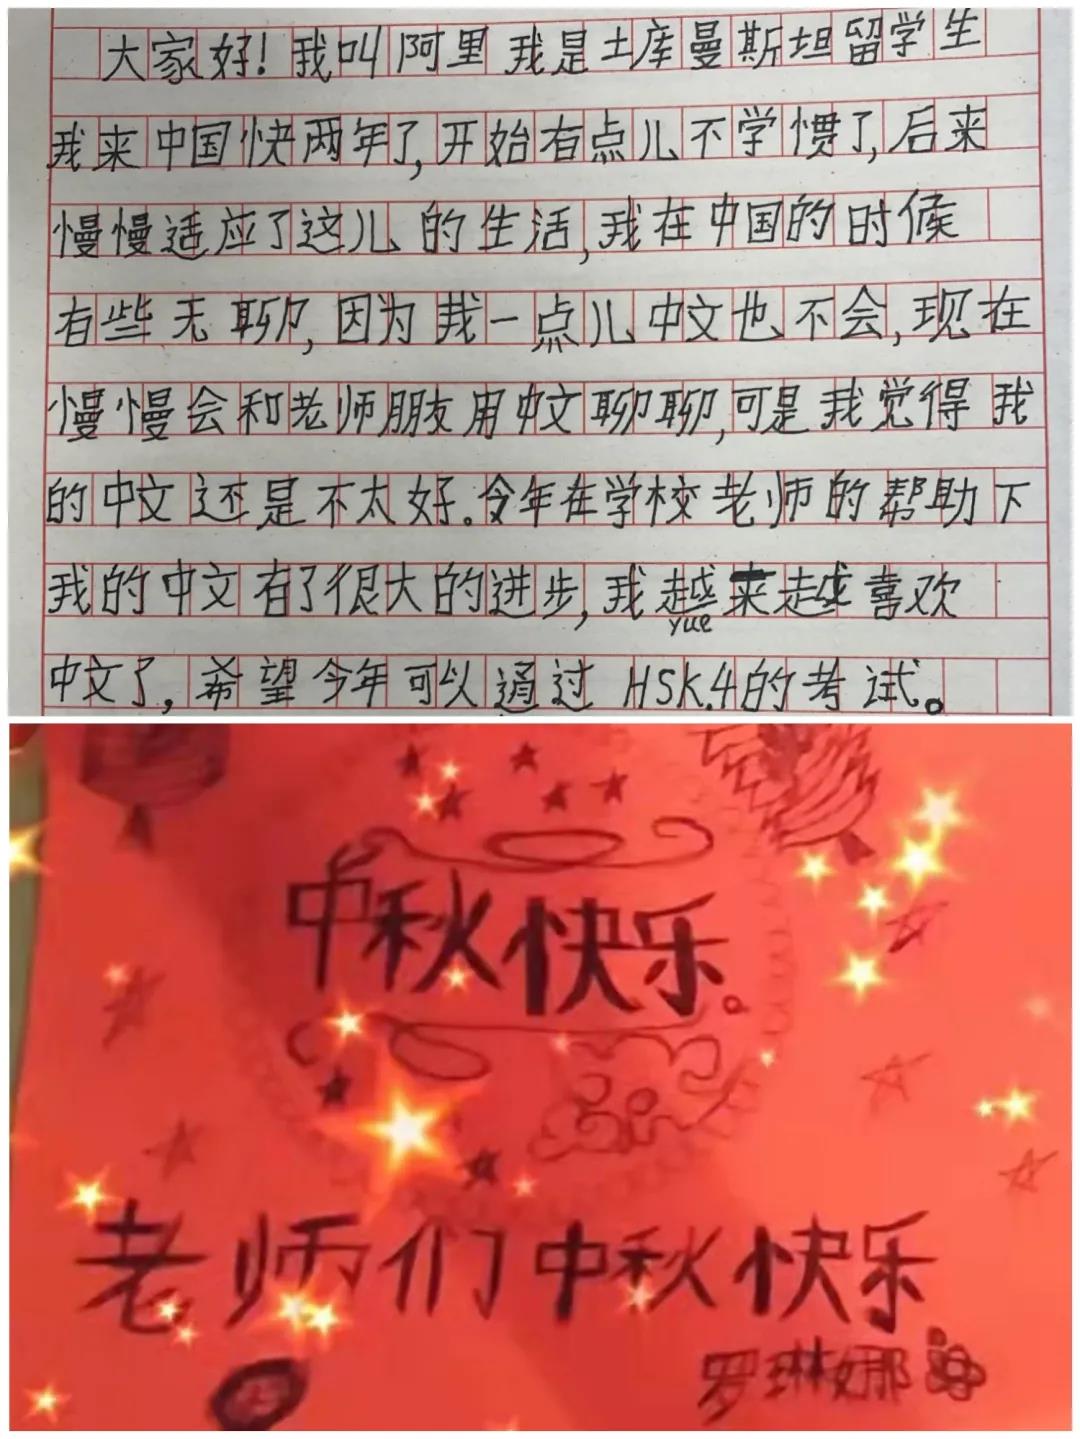 大家好！我叫阿里 我是土库曼斯坦留学生
我来中国快两年了,开始有点儿不学惯了,后来
慢慢适应了这儿的生活,我在中国的时候
有些无聊,因为我一点儿中文也不会,现在
慢慢会和老师朋友用中文聊聊,可是我觉得我
的中文还是不太好。今年在学校老师的帮助下
我的中文有了很大的进步,我越来越喜欢
yue
中文了,希望今年可以通过HSK.4的考试。
中秋快乐。
老师们中秋快乐
罗琳娜